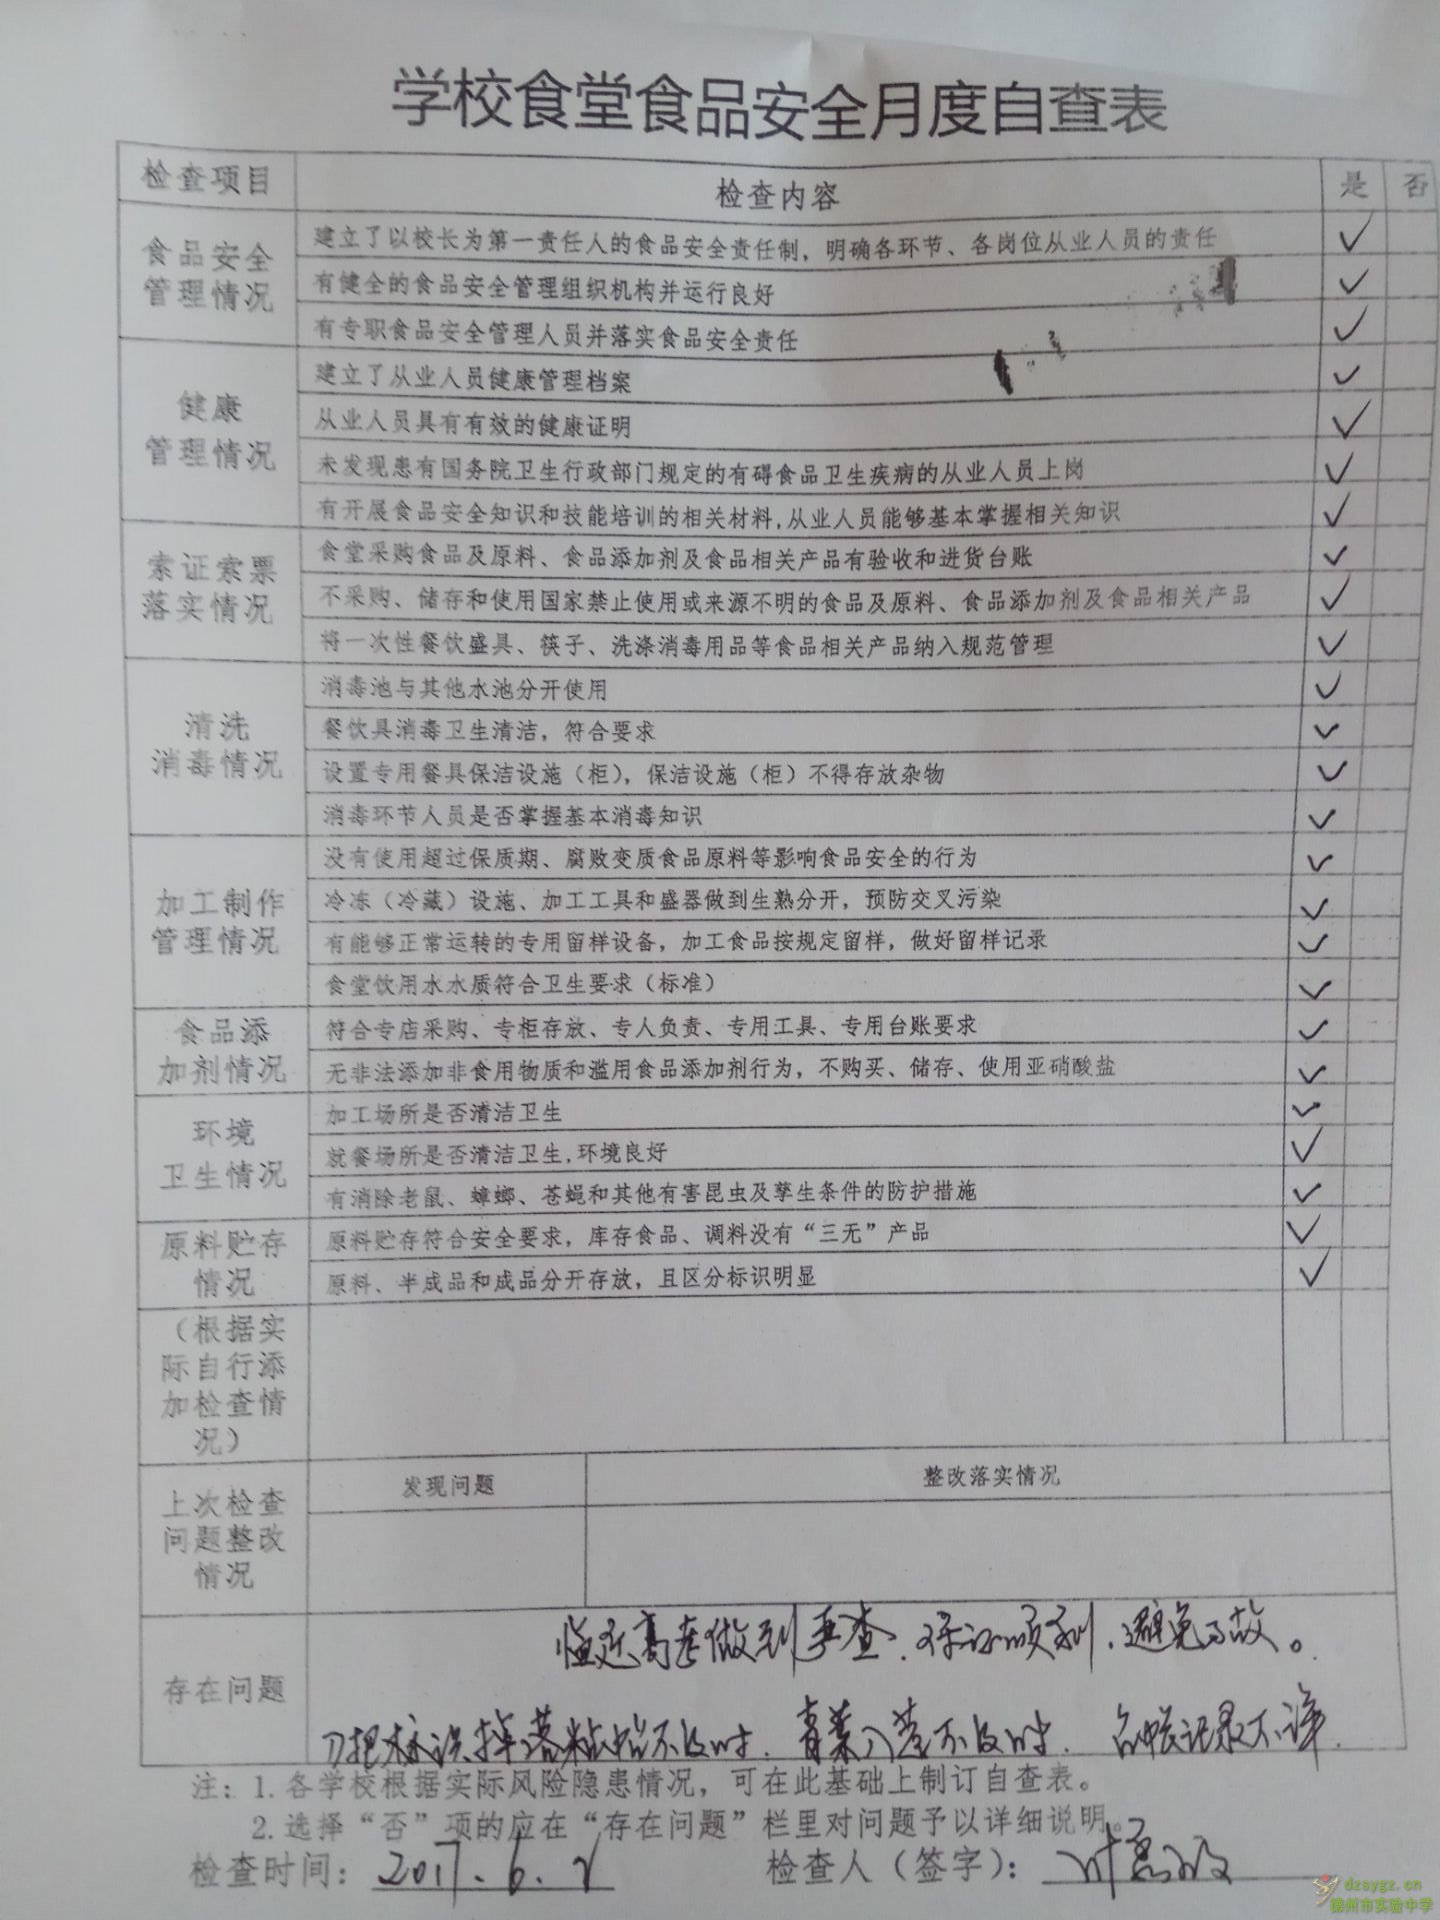 学校食堂食品安全月度自查表
检查项目 检查内容 是 否
食品安全
管理情况
建立了以校长为第一责任人的食品安全责任制，明确各环节、各岗位从业人员的责任 ✓
有健全的食品安全管理组织机构并运行良好 ✓
有专职食品安全管理人员并落实食品安全责任 ✓
健康
管理情况
建立了从业人员健康管理档案 ✓
从业人员具有有效的健康证明 ✓
未发现患有国务院卫生行政部门规定的有碍食品卫生疾病的从业人员上岗 ✓
有开展食品安全知识和技能培训的相关材料,从业人员能够基本掌握相关知识 ✓
索证索票
落实情况
食堂采购食品及原料、食品添加剂及食品相关产品有验收和进货台账 ✓
不采购、储存和使用国家禁止使用或来源不明的食品及原料、食品添加剂及食品相关产品 ✓
将一次性餐饮盛具、筷子、洗涤消毒用品等食品相关产品纳入规范管理 ✓
清洗
消毒情况
消毒池与其他水池分开使用 ✓
餐饮具消毒卫生清洁，符合要求 ✓
设置专用餐具保洁设施（柜），保洁设施（柜）不得存放杂物 ✓
消毒环节人员是否掌握基本消毒知识 ✓
加工制作
管理情况
没有使用超过保质期、腐败变质食品原料等影响食品安全的行为 ✓
冷冻（冷藏）设施、加工工具和盛器做到生熟分开，预防交叉污染 ✓
有能够正常运转的专用留样设备，加工食品按规定留样，做好留样记录 ✓
食堂饮用水水质符合卫生要求（标准） ✓
食品添
加剂情况
符合专店采购、专柜存放、专人负责、专用工具、专用台账要求 ✓
无非法添加非食用物质和滥用食品添加剂行为，不购买、储存、使用亚硝酸盐 ✓
环境
卫生情况
加工场所是否清洁卫生 ✓
就餐场所是否清洁卫生,环境良好 ✓
有消除老鼠、蟑螂、苍蝇和其他有害昆虫及孳生条件的防护措施 ✓
原料贮存
情况
原料贮存符合安全要求，库存食品、调料没有“三无”产品 ✓
原料、半成品和成品分开存放，且区分标识明显 ✓
（根据实
际自行添
加检查情
况）
上次检查
问题整改
情况
发现问题 整改落实情况
存在问题
临近高考做到 查、保证顺利、避免 故。
刀把标识掉落粘贴不及时、青菜入 不及时、台帐记录不详.
注：1.各学校根据实际风险隐患情况，可在此基础上制订自查表。
2.选择“否”项的应在“存在问题”栏里对问题予以详细说明。
检查时间：2017.6.2 检查人（签字）：
dzsygz.cn
德州市实验中学